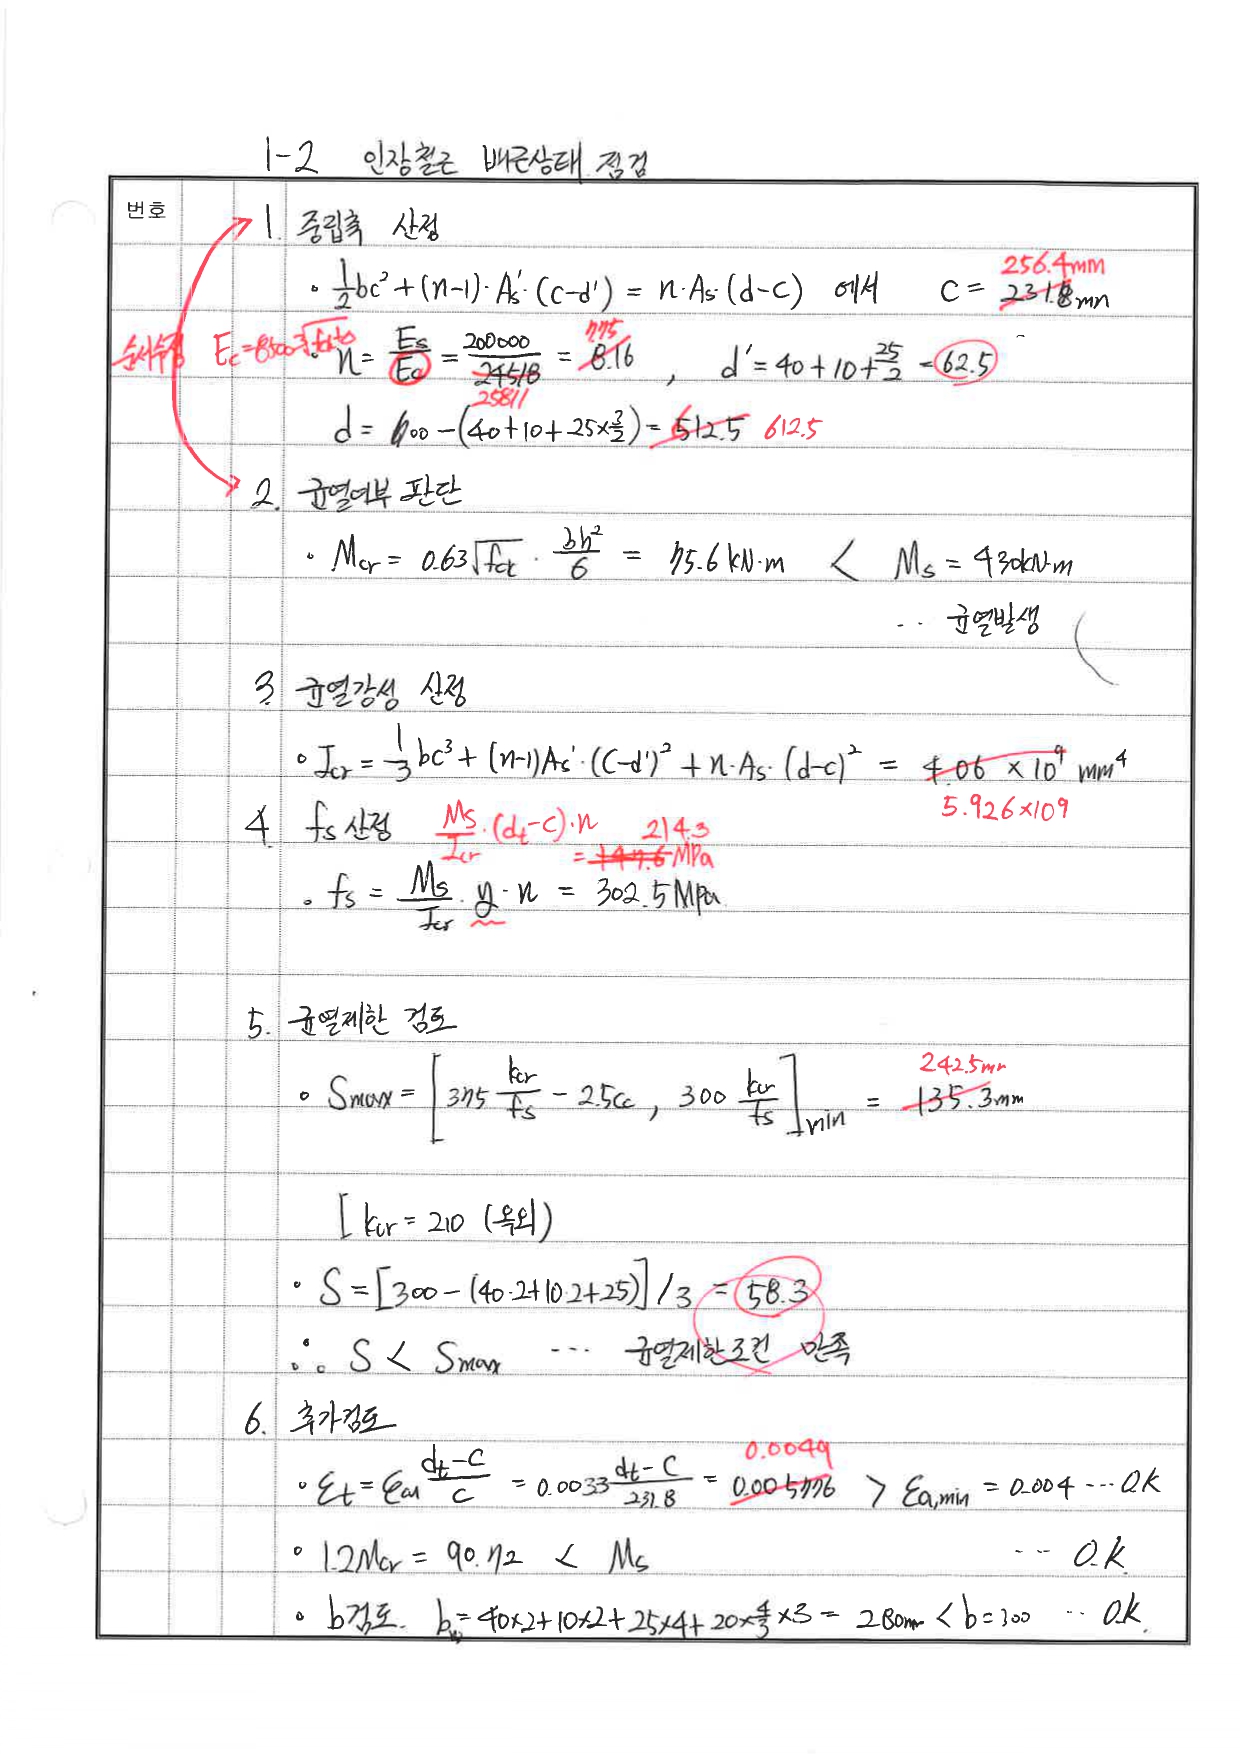 1-2 인장철근 배근상태 점검
번호
1. 중립축 산정
256.4mm
· ½bc² + (n-1)·As'·(c-d') = n·As·(d-c) 에서 c = 231.8mm
순서수정 Ec=8500∛fcu
· n = Es/Ec = 200000/24518 = 8.16 , d' = 40+10+25/2 = 62.5
7.75
25811
d = 600 - (40+10+25×3/2) = 512.5 612.5
2. 균열여부 판단
· Mcr = 0.63√fck · bh²/6 = 75.6 kN·m < Ms = 430kN·m
·· 균열발생
3. 균열강성 산정
· Icr = ⅓bc³ + (n-1)As'·(c-d')² + n·As·(d-c)² = 4.06 × 10⁹ mm⁴
5.926×109
4. fs 산정 Ms/Icr·(dt-c)·n = 147.6 MPa
214.3
· fs = Ms/Icr · y · n = 302.5 MPa
5. 균열제한 검토
242.5mm
· Smax = [375 kcr/fs - 2.5cc , 300 kcr/fs]min = 135.3mm
[ kcr = 210 (옥외)
· S = [300 - (40·2+10·2+25)] / 3 = 58.3
∴ S < Smax ··· 균열제한조건 만족
6. 추가검토
0.0049
· εt = εcu dt-c/c = 0.0033 dt-c/231.8 = 0.005776 > εa,min = 0.004 ··· O.K
· 1.2Mcr = 90.72 < Ms ·· O.K
· b검토. bw = 40×2+10×2+25×4+20×4/3×3 = 280mm < b=300 ·· O.K